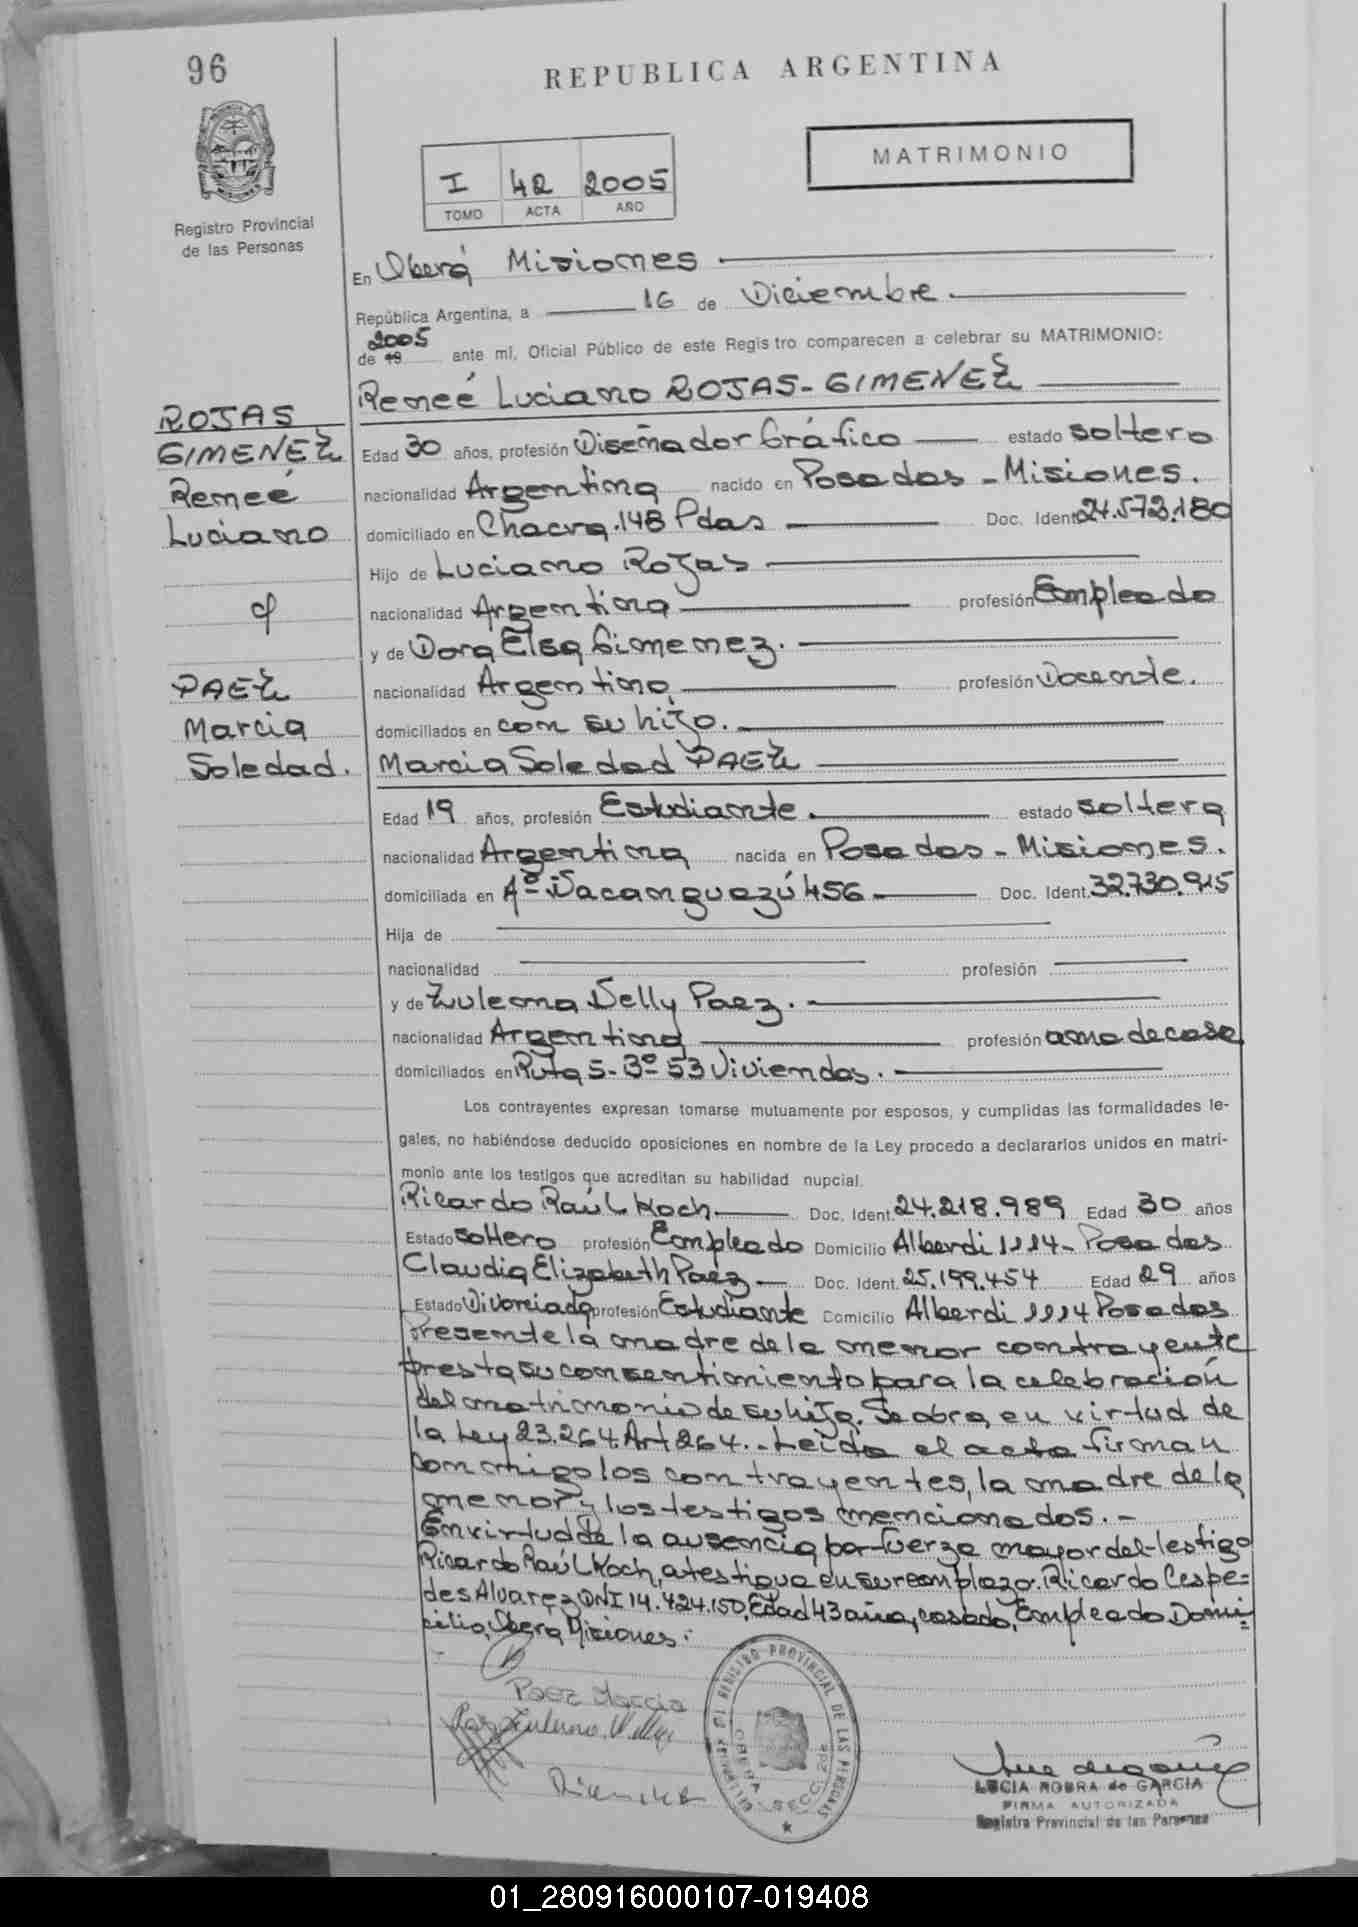 96
REPUBLICA ARGENTINA
MATRIMONIO
I 42 2005
TOMO ACTA AÑO
Registro Provincial
de las Personas
En Oberá Misiones
República Argentina, a 16 de Diciembre
2005
de 19 ante mí, Oficial Público de este Registro comparecen a celebrar su MATRIMONIO:
Reneé Luciano ROJAS-GIMENEZ
ROJAS
GIMENEZ
Reneé
Luciano
PAEZ
Marcia
Soledad.
Edad 30 años, profesión Diseñador Gráfico estado soltero
nacionalidad Argentina nacido en Posadas - Misiones.
domiciliado en Chacra.148 Pdas Doc. Ident. 24.573.180
Hijo de Luciano Rojas
nacionalidad Argentina profesión Empleado
y de Dora Elsa Gimenez.
nacionalidad Argentina profesión Docente.
domiciliados en con su hijo.
Marcia Soledad PAEZ
Edad 19 años, profesión Estudiante. estado soltera
nacionalidad Argentina nacida en Posadas - Misiones.
domiciliada en Aº Yacanguazú 456 Doc. Ident. 32.730.915
Hija de
nacionalidad profesión
y de Zulema Nelly Paez.
nacionalidad Argentina profesión ama de casa
domiciliados en Ruta 5-3º 53 Viviendas.
Los contrayentes expresan tomarse mutuamente por esposos, y cumplidas las formalidades le-
gales, no habiéndose deducido oposiciones en nombre de la Ley procedo a declararlos unidos en matri-
monio ante los testigos que acreditan su habilidad nupcial.
Ricardo Raúl Koch Doc. Ident. 24.218.989 Edad 30 años
Estado soltero profesión Empleado Domicilio Alberdi 1114 - Posadas
Claudia Elizabeth Paez Doc. Ident. 25.199.454 Edad 29 años
Estado Divorciada profesión Estudiante Domicilio Alberdi 1114 Posadas
Presente la madre de la menor contrayente
presta su consentimiento para la celebración
del matrimonio de su hija. Se obra, en virtud de
la Ley 23.264 Art 264.- Leída el acta firman
conmigo los contrayentes, la madre de la
menor y los testigos mencionados.-
En virtud de la ausencia por fuerza mayor del testigo
Ricardo Raúl Koch, atestigua en su reemplazo. Ricardo Cespe=
des Alvarez DNI 14.424.150, Edad 43 años, casado, Empleado Domi=
cilio, Oberá Misiones.
Paez Marcia
REGISTRO PROVINCIAL DE LAS PERSONAS
OBERA SECC. 2da
LUCIA ROBRA de GARCIA
FIRMA AUTORIZADA
Registro Provincial de las Personas
01_280916000107-019408